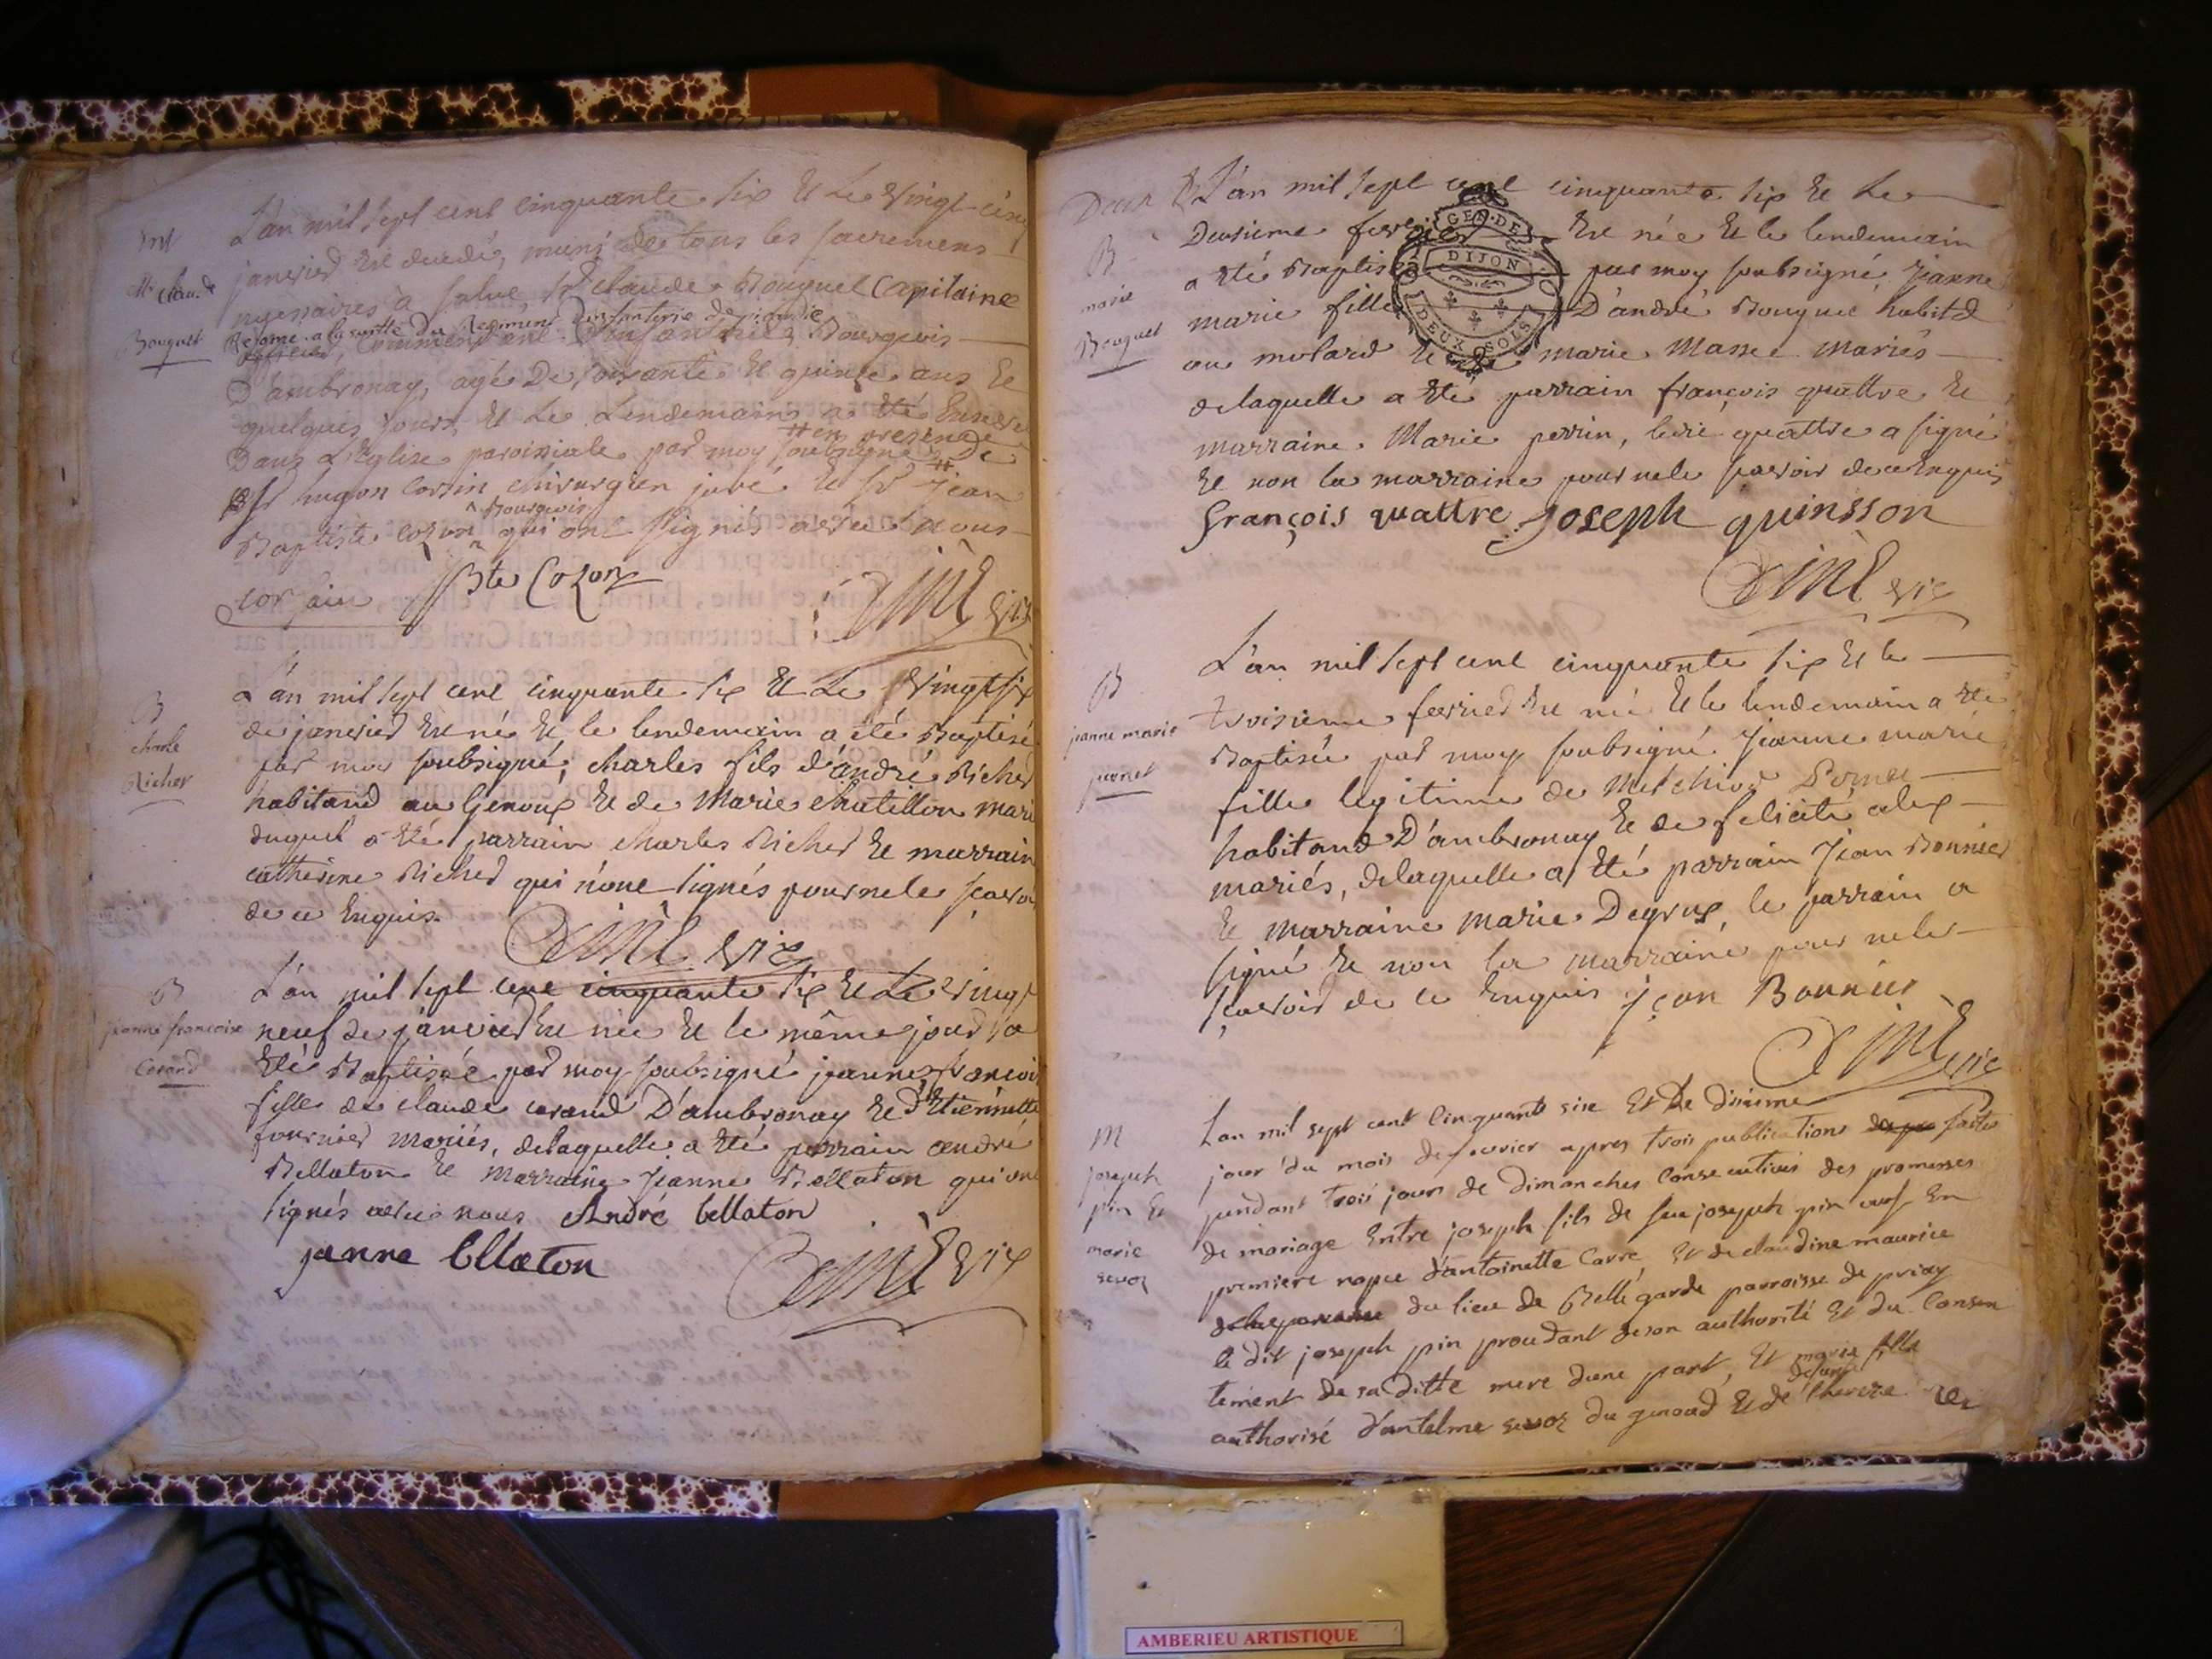 mt
Mr claude
Bouquet
L'an mil sept cent cinquante six et Le vingt cinq
janvier est decedé, muni de tous les sacremens
necessaires à salut, Sr claude Bouquet Capitaine
Reformé a la suitte du Regiment d'infanterie de picardie
Bourgeois
D'ambronay, agé De soixante et quinze ans et
quelques jours, et Le Lendemain a été Enseveli
Dans L'Eglise paroissiale par moy soubsigné # en presence De
Sr hugon Corsin chirurgien juré et Sr Jean
Baptiste Cozon Bourgeois qui ont signés avec nous
Corsain JBte Cozon vic
B
charle
Richer
L'an mil sept cent cinquante six et Le vingt six
de janvier est né et le lendemain a été Baptisé
par moy soubsigné, charles fils d'andré Richer
habitand au Genoux et de Marie chatillon mari
duquel a été parrain charles Richer et marrain
catherine Richer qui n'ont signés pour ne le scavoi
de ce Enquis.
vic
B
jeanne francoise
Cerand
L'an mil sept cent cinquante six et Le vingt
neuf de janvier est née et le même jour a
été Baptisée par moy soubsigné jeanne francoi
fille de claude cerand D'ambronay et d'Etiennette
fournier mariés, delaquelle a été parrain andré
Bellaton et marraine Jeanne Bellaton qui ont
signés avec nous André bellaton
janne bllaton
vic
B
marie
Bouquet
Deux L'an mil sept cent cinquante six et Le
Deusieme fevrier est née et le lendemain
a été Baptisée par moy soubsigné, Jeanne
marie fille D'andré Bouquet habitd
au motard et de marie Masse mariés
delaquelle a été parrain françois quattre et
marraine Marie perrin, ledit quattre a signé
et non la marraine pour ne le scavoir de ce Enquis
françois quattre Joseph quinsson
vic
GEN. DE
DIJON
DEUX SOLS
B
jeanne marie
pornet
L'an mil sept cent cinquante six et le
troisieme fevrier est née et le lendemain a été
Baptisée par moy soubsigné Jeanne marie
fille legitime de Melchior Pornet
habitand D'ambronay et de felicite alex
mariés, delaquelle a été parrain Jean Bonnier
et marraine Marie Degrux, le parrain a
signé et non la marraine pour ne le
scavoir de ce Enquis jean Bonnier
vic
M
joseph
pin et
marie
sevoz
Lan mil sept cent Cinquante sixe et Le dixieme
jour du mois de fevrier apres trois publications faites
pendant trois jours de dimanches Consecutives des promesses
de mariage Entre joseph fils de feu joseph pin veuf En
premiere nopce d'antoinette Carre, Et de claudine maurice
du lieu de Belle garde parroisse de priay
le dit joseph pin proudant de son authorité et du Consen
tement de sa ditte mere dune part, et marie fille
authorisé d'antelme sevoz du genoud et de defunte therese
AMBERIEU ARTISTIQUE